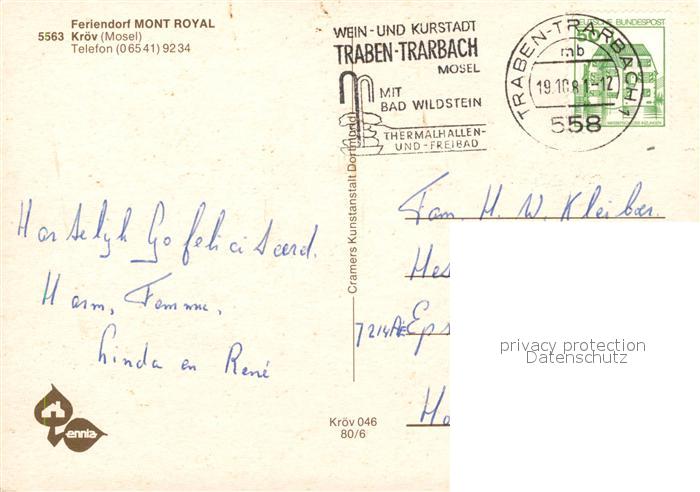 Feriendorf MONT ROYAL
5563 Kröv (Mosel)
Telefon (06541) 9234
WEIN-UND KURSTADT
TRABEN-TRARBACH
MOSEL
MIT
BAD WILDSTEIN
THERMALHALLEN-
UND-FREIBAD
TRABEN-TRARBACH 1
mb
19.10.81-12
558
DEUTSCHE BUNDESPOST
50
Hartelijk Gefeliciteerd.
Harm, Femma,
Linda en René
Cramers Kunstanstalt Dortmund
Fam. H. W. Kleiber.
Hes
7214AE Eps
Ho
privacy protection
Datenschutz
ennia
Kröv 046
80/6